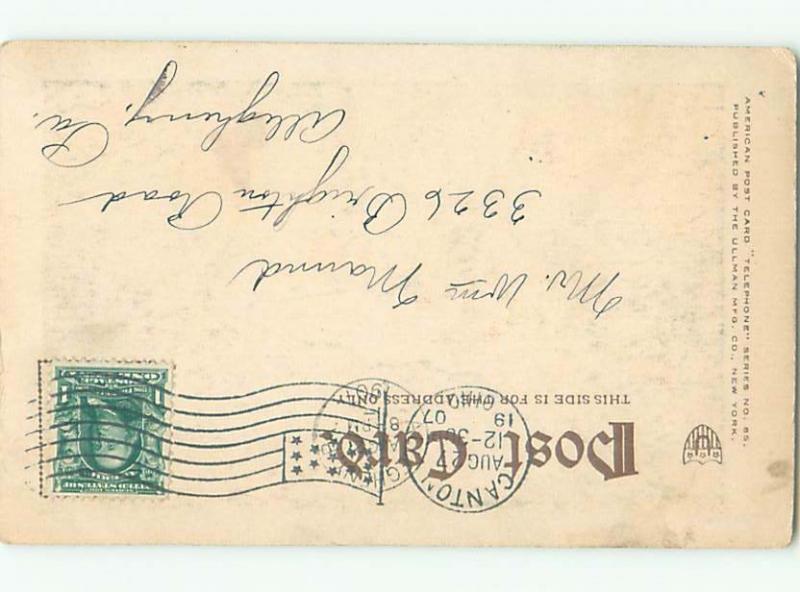 Post Card
THIS SIDE IS FOR THE ADDRESS ONLY
CANTON
AUG 17
12-30
1907
OHIO
UNITED STATES OF
ONE
1
1
Mr. Wm Mannd
3326 Brighton Road
Allegheny. Pa.
AMERICAN POST CARD "TELEPHONE" SERIES NO. 85,
PUBLISHED BY THE ULLMAN MFG. CO., NEW YORK.